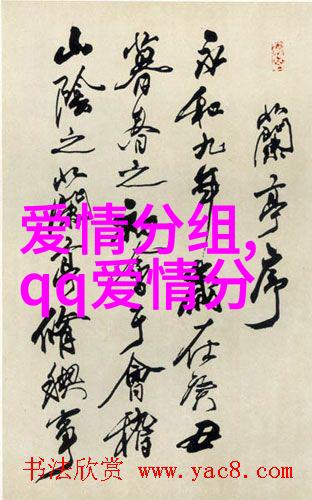 蘭亭序
永和九年歲在癸丑
暮春之初會于會稽
山陰之蘭亭脩禊事
爱情分组,
qq爱情分
书法欣赏 www.yac8.com